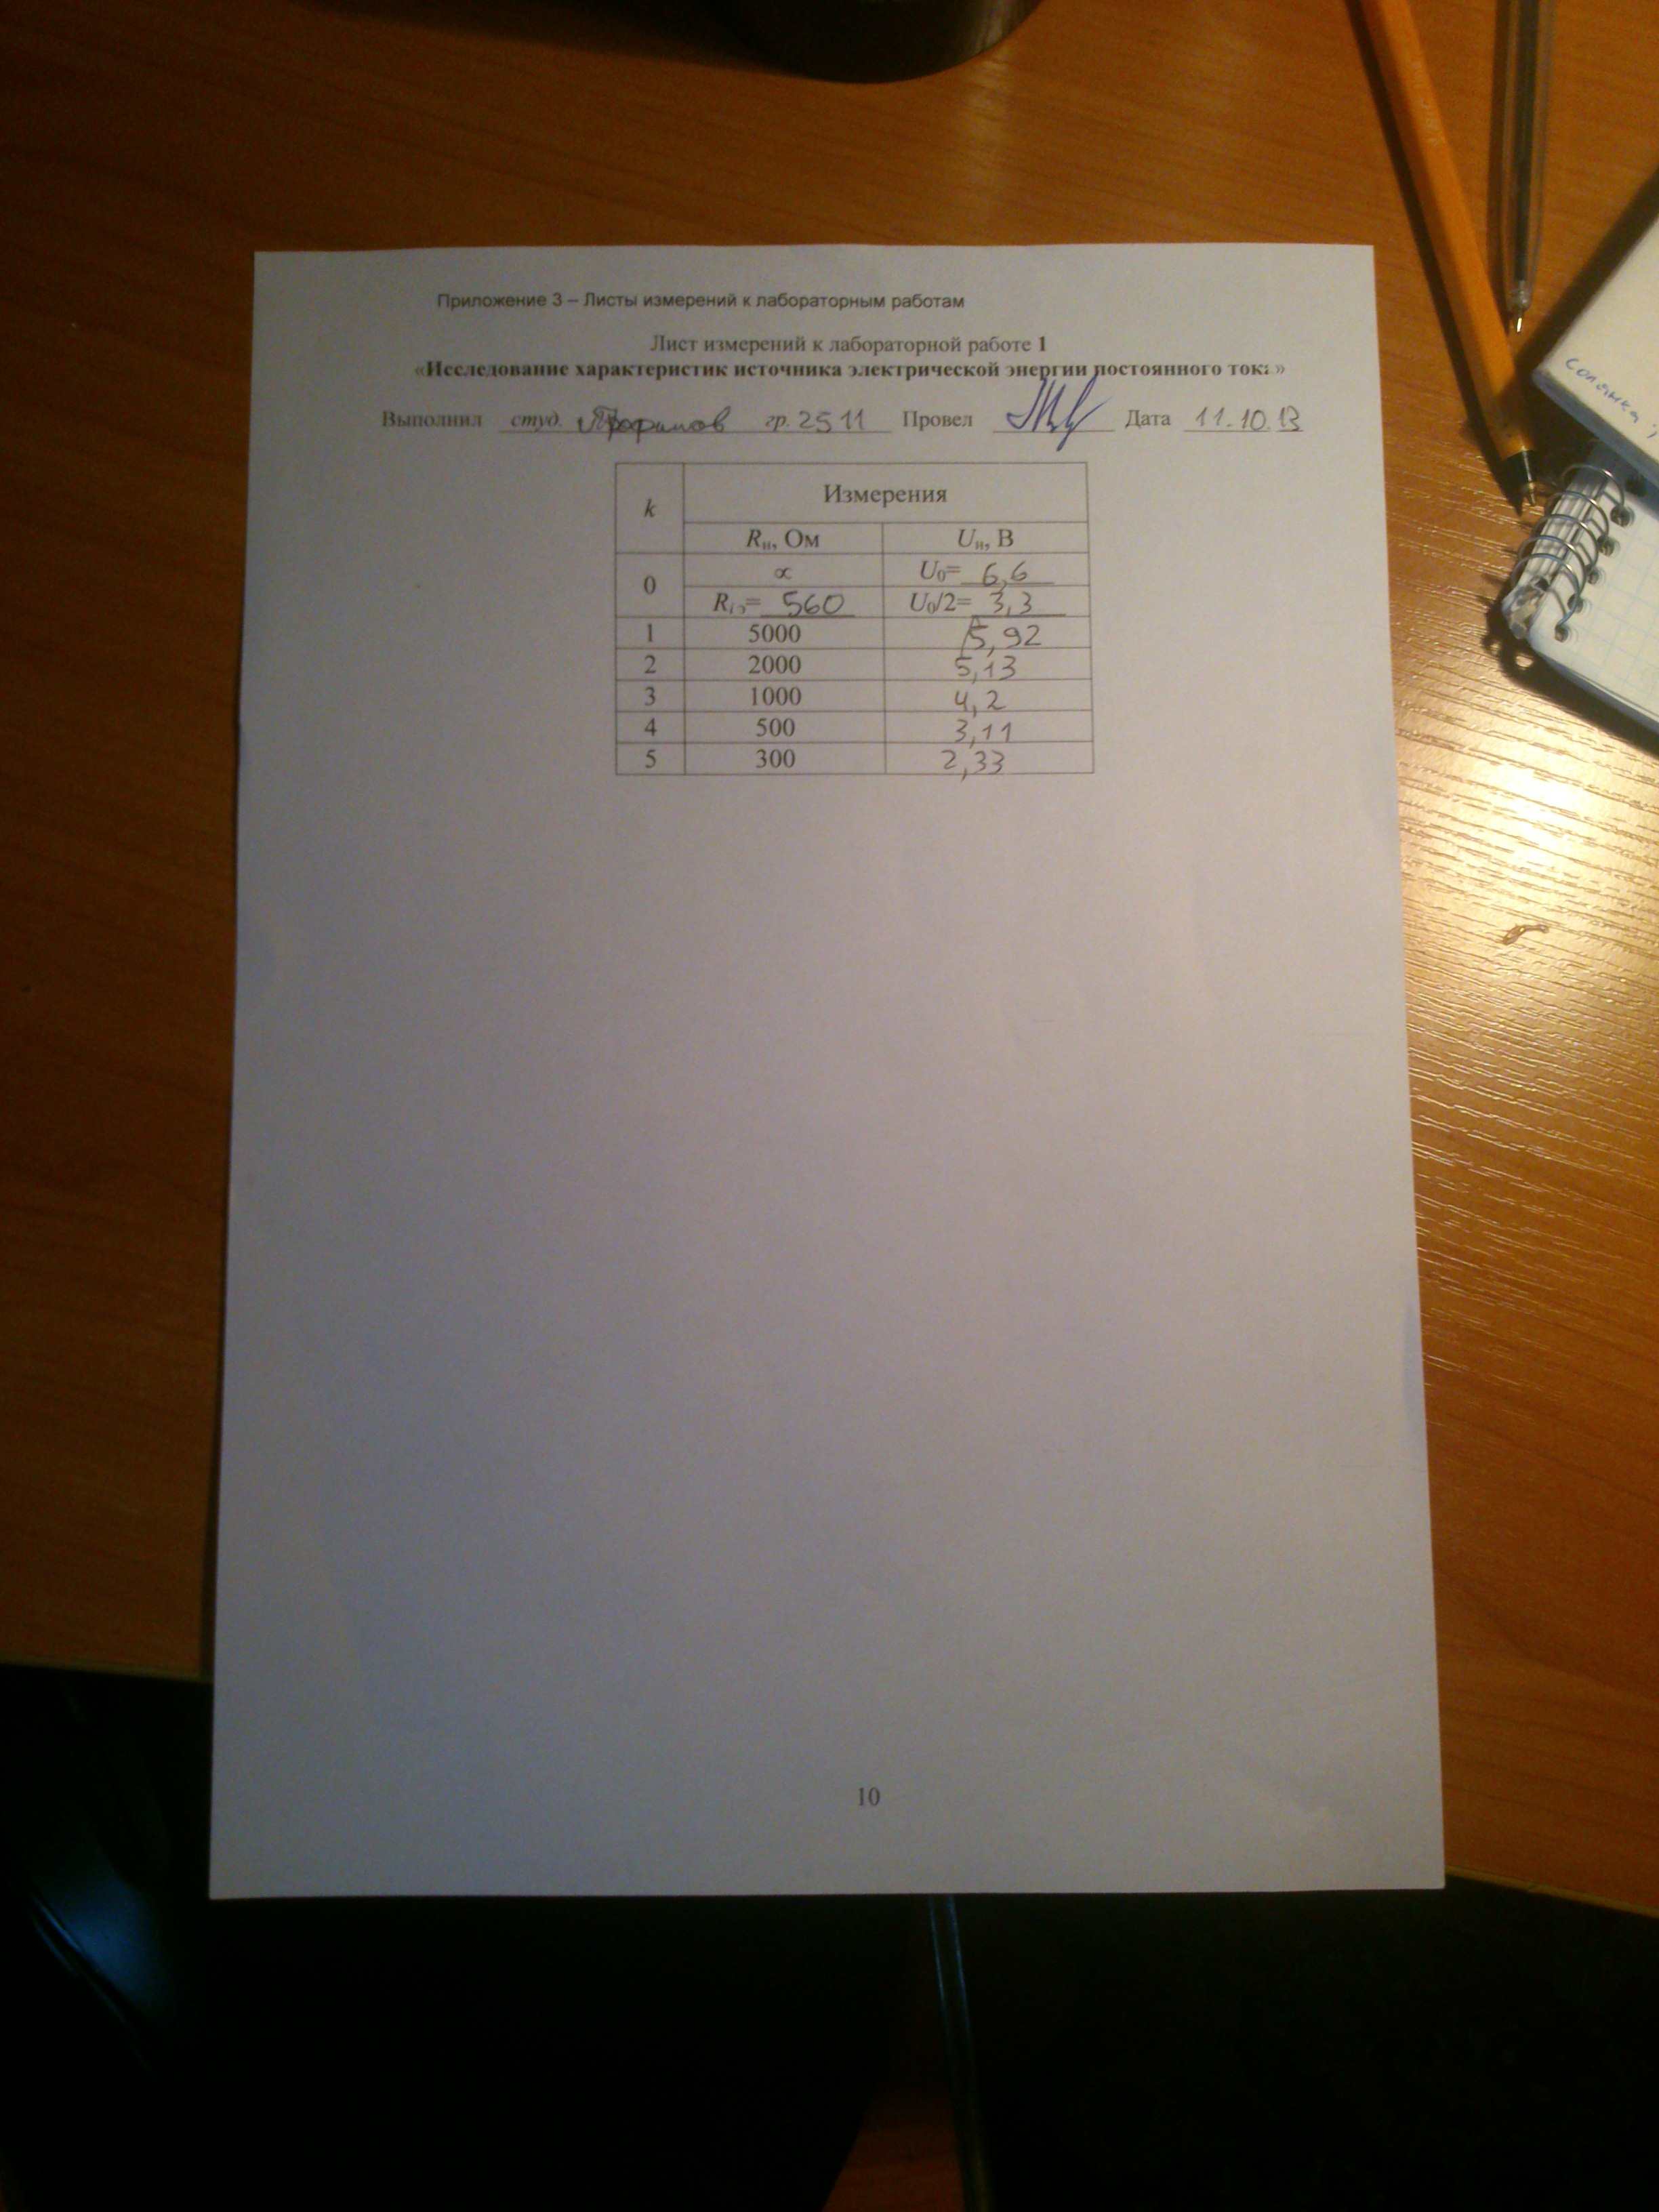 Приложение 3 – Листы измерений к лабораторным работам
Лист измерений к лабораторной работе 1
«Исследование характеристик источника электрической энергии постоянного тока»
Выполнил студ. Трофимов гр. 2511 Провел Дата 11.10.13
k Измерения
Rн, Ом Uн, В
0 ∝ U0= 6,6
Ri0= 560 U0/2= 3,3
1 5000 5,92
2 2000 5,13
3 1000 4,2
4 500 3,11
5 300 2,33
10
солянка,